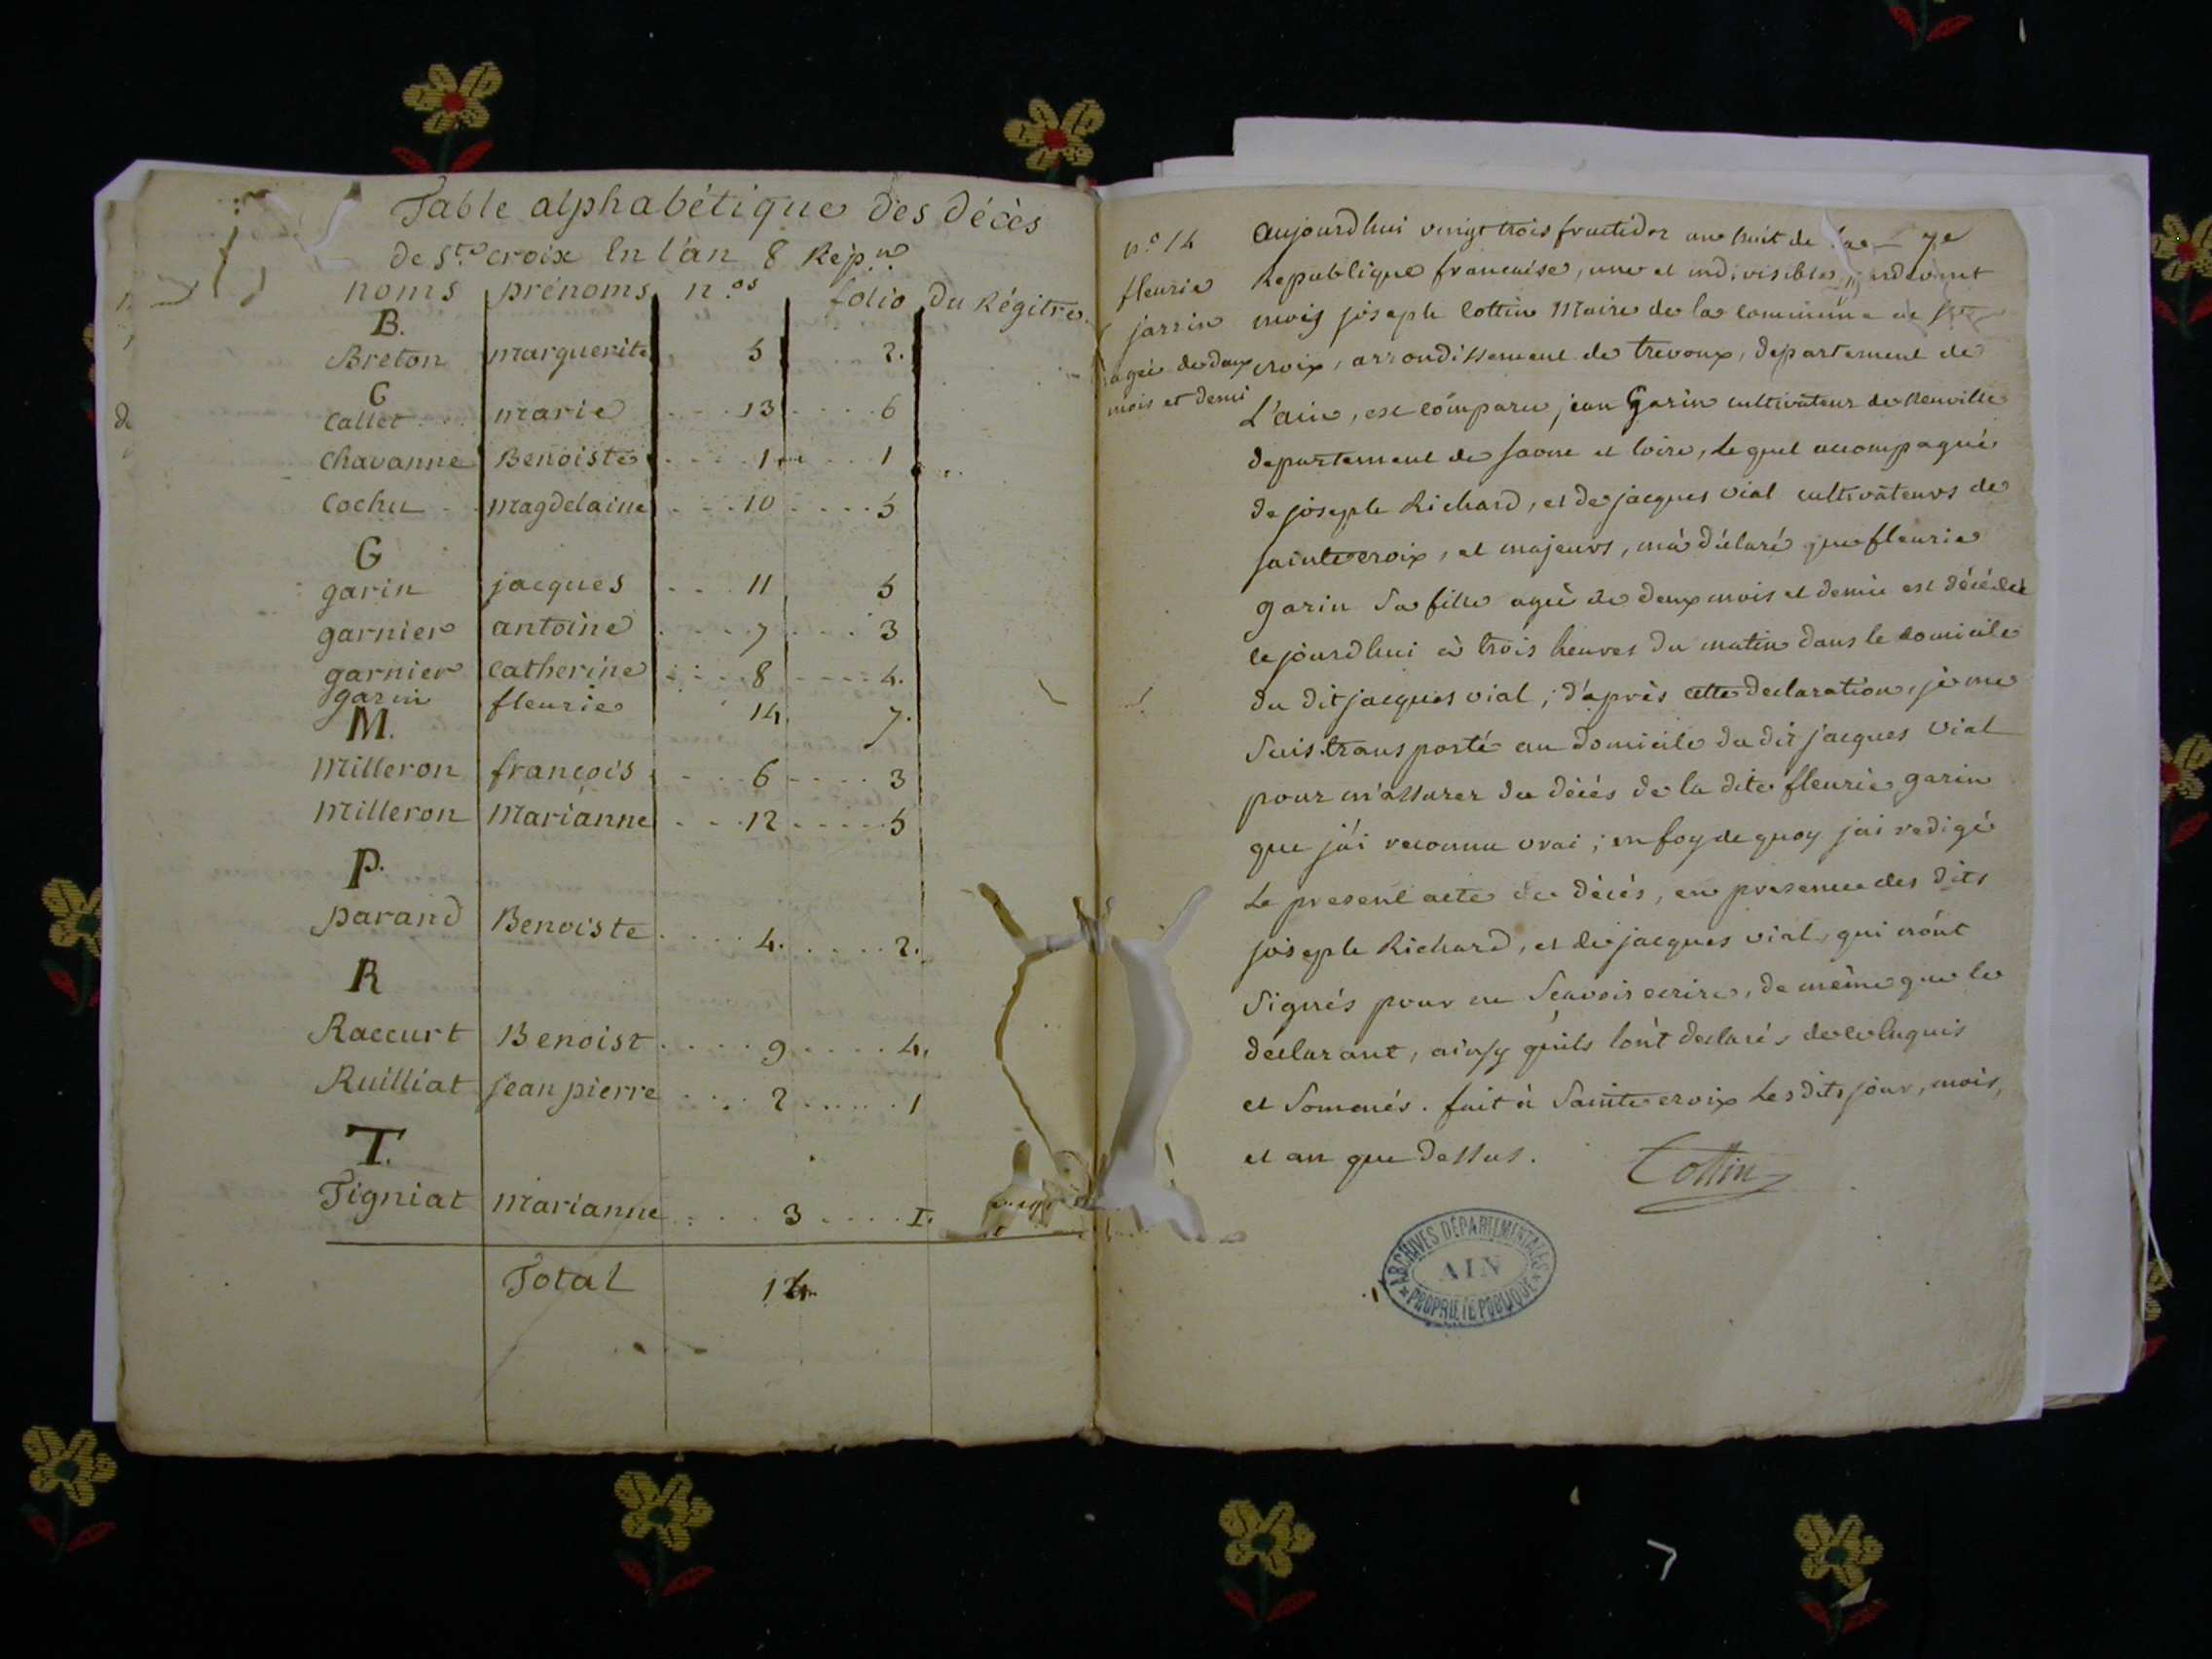 Table alphabétique des décès
de Ste croix En l'an 8 Rép.ne
noms prénoms n.os folio du Régitre
B.
Breton marguerite 5 2.
C
Callet marie 13 6
Chavanne Benoiste 1 1
Cochu magdelaine 10 5
G
garin jacques 11 5
garnier antoine 7 3
garnier catherine 8 4.
garin fleurie 14. 7.
M.
Milleron françois 6 3
Milleron Marianne 12 5
P.
parand Benoiste 4. 2.
R
Raccurt Benoist 9 4.
Ruilliat jean pierre 2 1
T.
Tigniat Marianne 3 I.
Total 14
n.o 14
fleurie
jarrin
agée de deux
mois et demi
7e
aujourdhui vingt trois fructidor an huit de
Republique francaise, une et indivisible, pardevant
moy joseph Cottin Maire de la commune de Ste
croix, arrondissement de trevoux, departement de
L'ain, est comparu jean Garin cultivateur de Renville
departement de saone et loire, lequel accompagné
de joseph Richard, et de jacques vial cultivateurs de
sainte croix, et majeurs, m'a déclaré que fleurie
garin sa fille agée de deux mois et demie est décédée
cejourdhui à trois heures du matin dans le domicile
du dit jacques vial ; d'après cette declaration, je me
suis transporté au domicile du dit jacques vial
pour m'assurer du décés de la dite fleurie garin
que j'ai reconnu vrai ; en foy de quoy j'ai redigé
Le present acte de décés, en presence des dits
joseph Richard, et de jacques vial qui n'ont
signés pour ne scavoir ecrire, de même que le
déclarant, ainsy qu'ils l'ont declarés de ce enquis
et somenés. fait à Sainte croix Les dits jour, mois,
et an que dessus.
Cottin
ARCHIVES DÉPARTEMENTALES
AIN
PROPRIÉTÉ PUBLIQUE